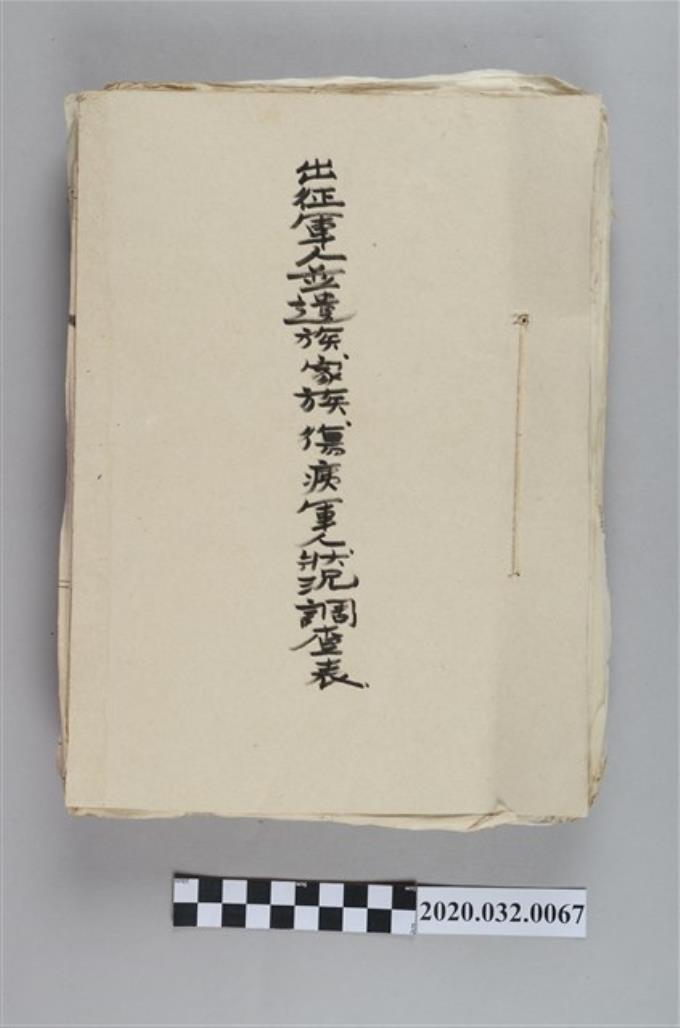 出征軍人並遺族家族傷痍軍人狀況調查表
2020.032.0067